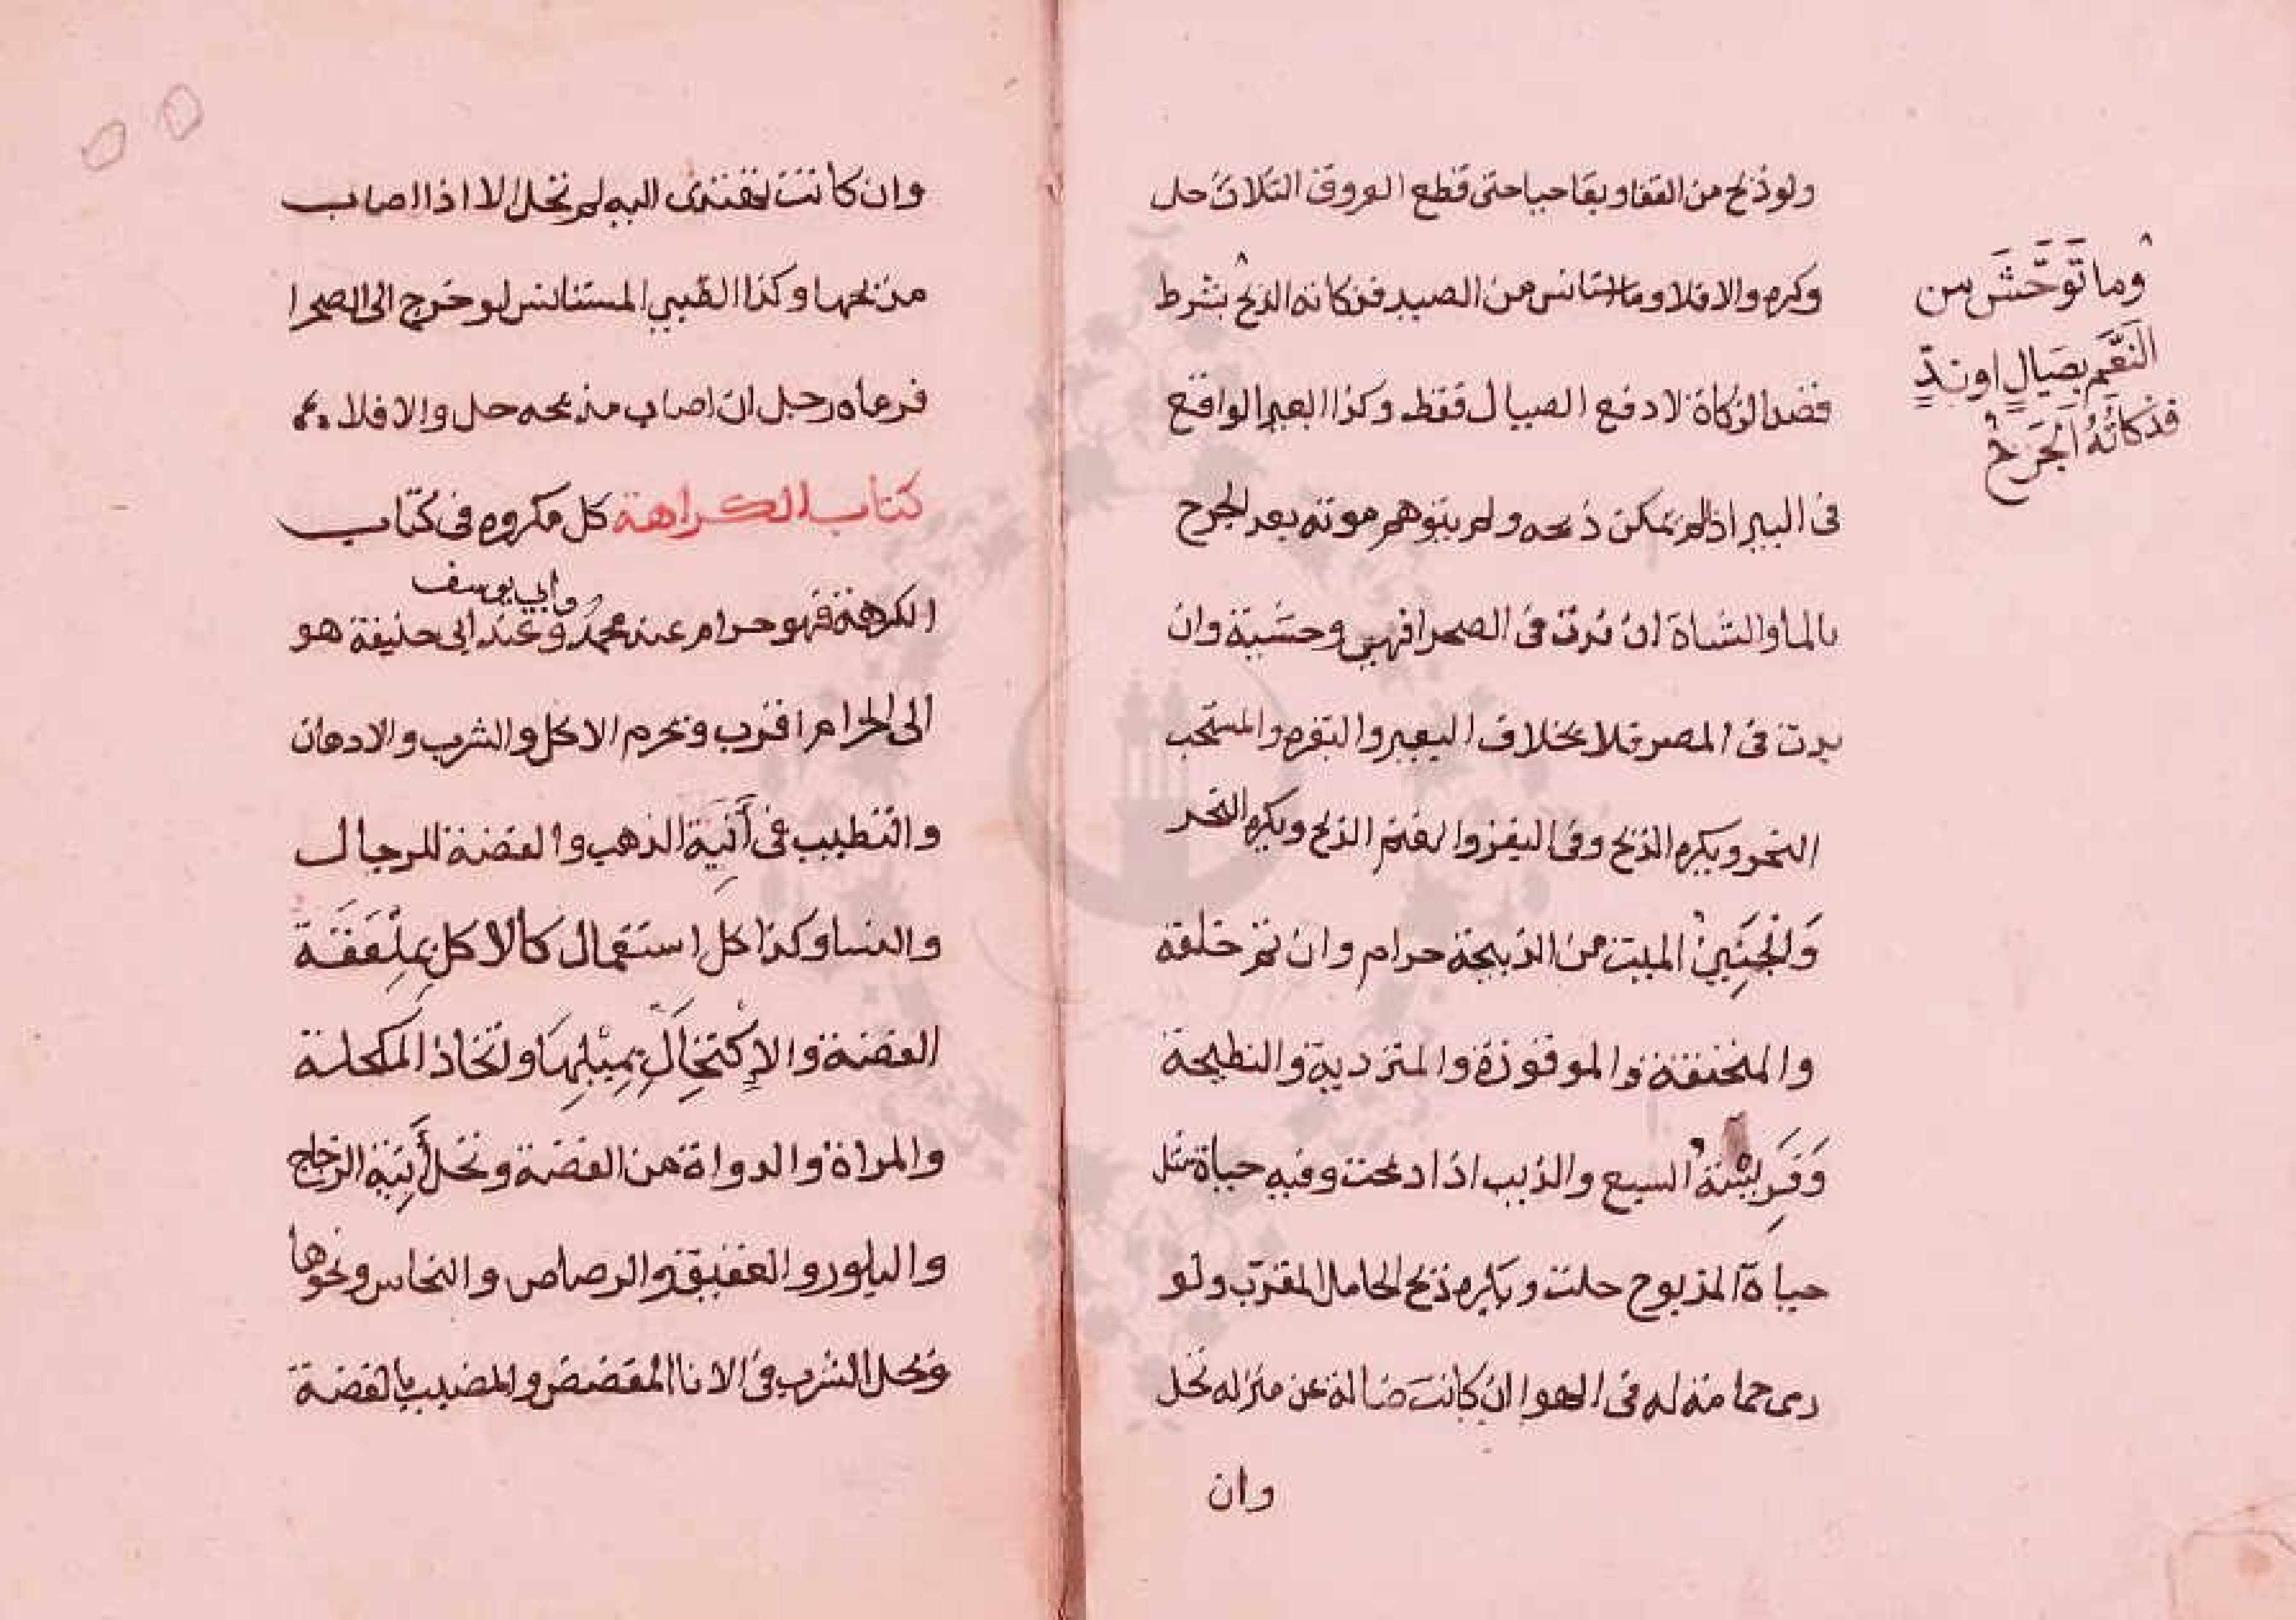 ولو ذبح من القفا وبقا حيا حتى قطع العروق الثلاث حل
وكره والا فلا وما استانس من الصيد فذكاته الذبح بشرط
قصد الزكاة لا دفع الصيال فقط وكذا البعير الواقع
فى البير اذا لم يمكن ذبحه ولم يتوهم موته بعد الجرح
بالما والشاة ان ندت فى الصحرا فهى وحشية وان
ندت فى المصر فلا بخلاف البعير والبقره والمستحب
النحر ويكره الذبح وفى البقر والغنم الذبح ويكره النحر
وَالْجَنِينُ الميت من الذبيحة حرام وان تم خلقة
والمنخنقة والموقوذة والمتردية والنطيحة
وَفَرِيسَةُ السبع والذيب اذا ذبحت وفيه حياة مثل
حياة المذبوح حلت ويكره ذبح الحامل المقرب ولو
رمى حمامة له فى الهوا ان كانت ضالة عن منزله تحل
وان
وما تَوَحَّشَ من
النَعَمِ بصَيالٍ او ندٍّ
فذكاتُهُ الجَرْحُ
وان كانت تهتدى اليه لم تحل الا اذا اصاب
مذبحها وكذا الظبى المستانس لو خرج الى الصحرا
فرماه رجل ان اصاب مذبحه حل والا فلا
كتاب الكراهة كل مكروه فى كتاب
الكرهة فهو حرام عند محمد وعند ابى حنيفة هو
وابى يوسف
الى الحرام اقرب ويحرم الاكل والشرب والادهان
والتطيب فى أَنِيَةِ الذهب والفضة للرجال
والنسا وكذا كل استعمال كالاكل بمِلْعَقَة
الفضة والإكْتِحَالِ بِمِيْلِهَا واتخاذ المكحلة
والمراة والدواة من الفضة وتحل أَنِيَة الزجاج
والبلور والعقيق والرصاص والنحاس ونحوها
ويحل الشرب فى الانا المفضض والمضبب بالفضة